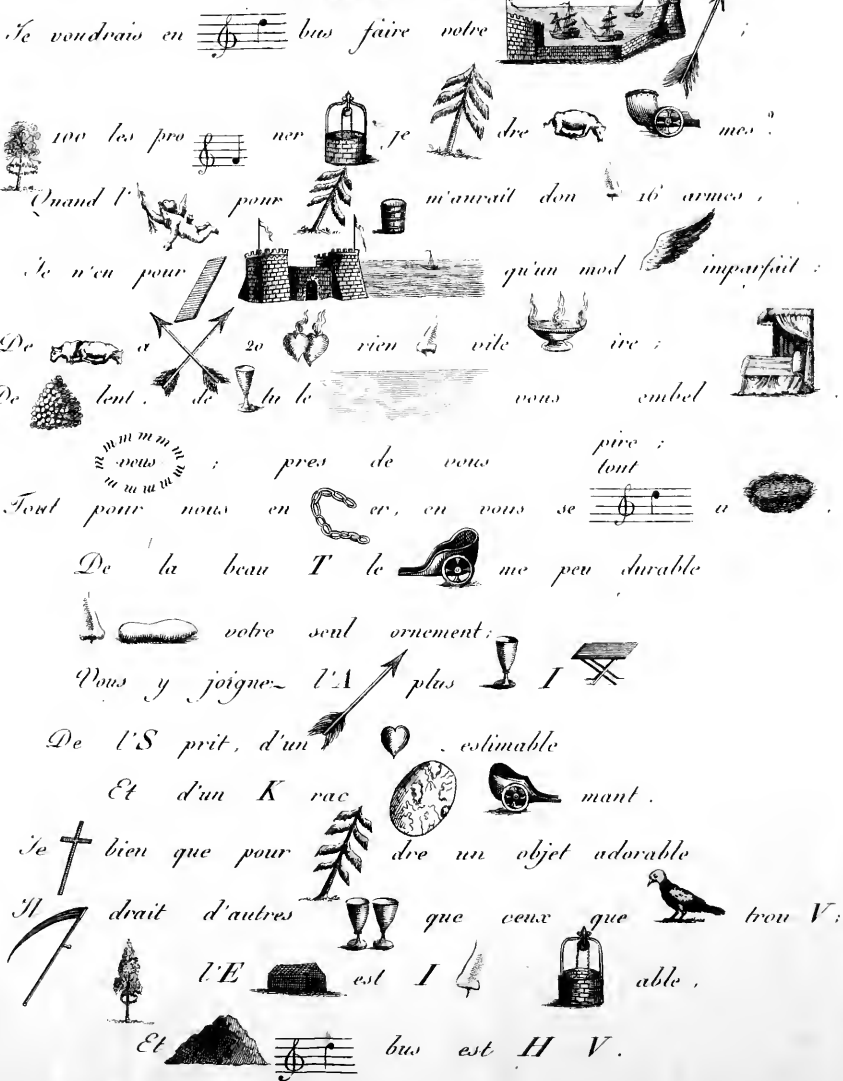 Je voudrais en bus faire votre ;
100 les pro ner je dre mes ?
Quand l' pour m'aurait don 16 armes,
Je n'en pour qu'un mod imparfait :
De a 20 rien vite ire ;
De lent, de lu le vous embel .
m m m m m m pire ;
vous ; pres de vous tout
m m m m m m
Tout pour nous en er, en vous se u .
De la beau T le me peu durable
votre seul ornement ;
Vous y joignez l'A plus I
De l'S prit, d'un estimable
Et d'un K rac mant .
Je bien que pour dre un objet adorable
Il drait d'autres que ceux que trou V ;
l'E est I able ,
Et bus est H V .